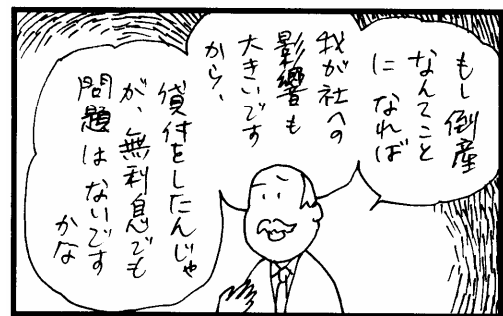 もし倒産
なんてこと
になれば
我が社への
影響も
大きいです
から、
貸付をしたんじゃ
が、無利息でも
問題はないです
かな